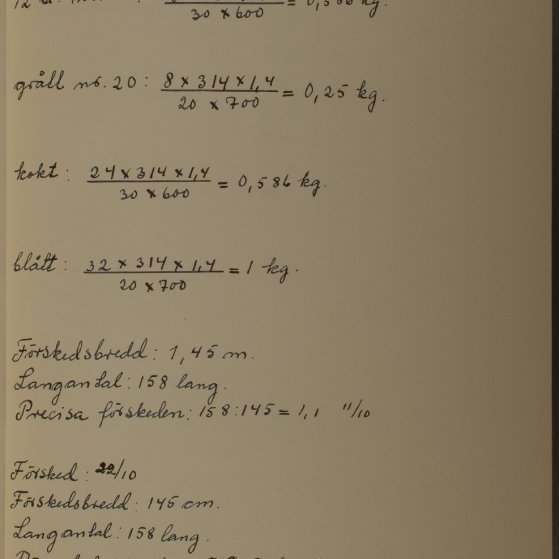 30 × 600 = 0,586 kg.
grått no. 20 : 8 × 314 × 1,4 = 0,25 kg.
20 × 700
kokt : 24 × 314 × 1,4 = 0,586 kg.
30 × 600
blått : 32 × 314 × 1,4 = 1 kg.
20 × 700
Förskedsbredd : 1,45 m.
Langantal : 158 lang.
Precisa förskeden : 158 : 145 = 1,1 11/10
Försked : 22/10
Förskedsbredd : 145 cm.
Langantal : 158 lang.